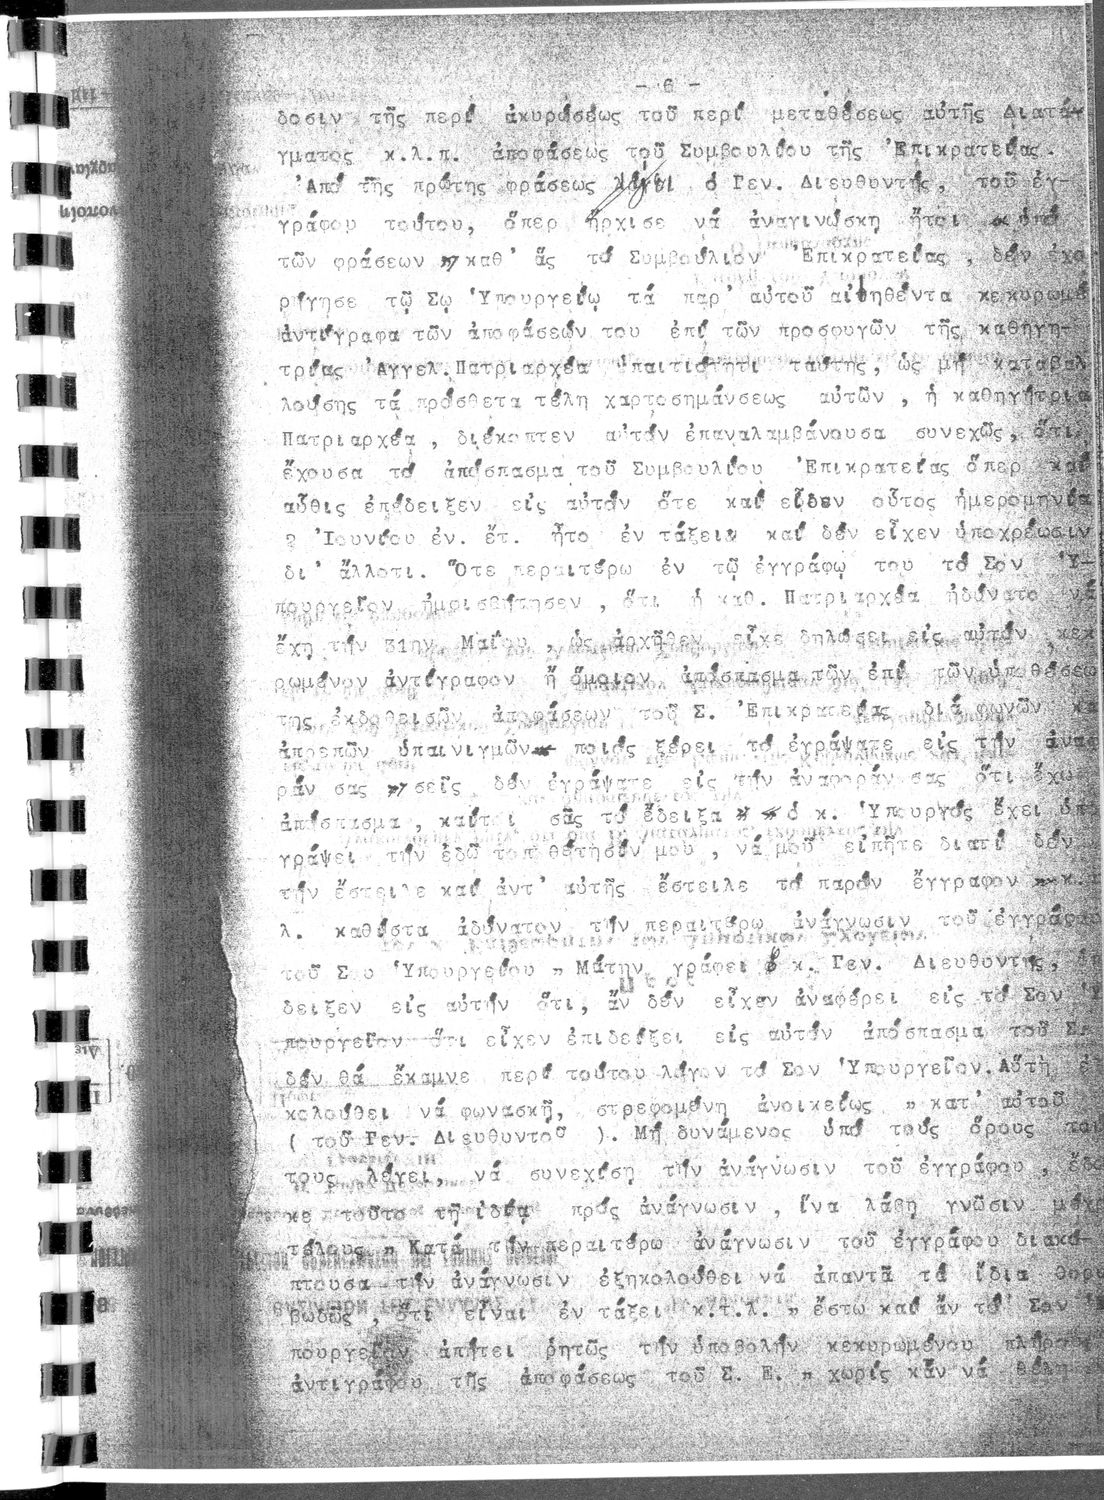 - 6 -
δοσιν τῆς περί ἀκυρώσεως τοῦ περί μεταθέσεως αὐτῆς Διατά-
γματος κ.λ.π. ἀποφάσεως τοῦ Συμβουλίου τῆς Ἐπικρατείας.
Ἀπό τῆς πρώτης φράσεως λέγει ὁ Γεν. Διευθυντής, τοῦ ἐγ-
γράφου τούτου, ὅπερ ἤρχισε νά ἀναγινώσκη ἤτοι « ὑπό
τῶν φράσεων » καθ' ἅς τό Συμβούλιον Ἐπικρατείας, δέν ἐχο
ρήγησε τῷ Σῳ Ὑπουργείῳ τά παρ' αὐτοῦ αἰτηθέντα κεκυρωμέ
ἀντίγραφα τῶν ἀποφάσεών του ἐπί τῶν προσφυγῶν τῆς καθηγη-
τρίας Ἀγγελ. Πατριαρχέα ὑπαιτιότητι ταύτης, ὡς μή καταβαλ
λούσης τά πρόσθετα τέλη χαρτοσημάνσεως αὐτῶν, ἡ καθηγήτρια
Πατριαρχέα, διέκοπτεν αὐτόν ἐπαναλαμβάνουσα συνεχῶς, ὅτι,
ἔχουσα τό ἀπόσπασμα τοῦ Συμβουλίου Ἐπικρατείας ὅπερ καί
αὖθις ἐπέδειξεν εἰς αὐτόν ὅτε καί εἶδεν οὗτος ἡμερομηνία
2 Ἰουνίου ἐν. ἔτ. ἦτο ἐν τάξει καί δέν εἶχεν ὑποχρέωσιν
δι' ἄλλοτι. Ὅτε περαιτέρω ἐν τῷ ἐγγράφῳ του τό Σον Ὑ-
πουργεῖον ἠμφισβήτησεν, ὅτι ἡ καθ. Πατριαρχέα ἠδύνατο νά
ἔχη τήν 31ην Μαΐου, ὡς ἀρχῆθεν εἶχε δηλώσει εἰς αὐτόν, κεκ
ρωμένον ἀντίγραφον ἤ ὅμοιον ἀπόσπασμα τῶν ἐπί τῶν ὑποθέσεω
της ἐκδοθεισῶν ἀποφάσεων τοῦ Σ. Ἐπικρατείας διά φωνῶν κα
ἀπρεπῶν ὑπαινιγμῶν « ποιός ξέρει τό ἐγράψατε εἰς τήν ἀναφ
ράν σας » σεῖς δέν ἐγράψατε εἰς τήν ἀναφοράν σας ὅτι ἔχω
ἀπόσπασμα, καίτοι σᾶς τό ἔδειξα » « ὁ κ. Ὑπουργός ἔχει ὑπο
γράψει τήν ἐδῶ τοποθέτησίν μου, νά μοῦ εἰπῆτε διατί δέν
τήν ἔστειλε καί ἀντ' αὐτῆς ἔστειλε τό παρόν ἔγγραφον » κ.
λ. καθίστα ἀδύνατον τήν περαιτέρω ἀνάγνωσιν τοῦ ἐγγράφου
τοῦ Σου Ὑπουργείου » Μάτην γράφει ὁ κ. Γεν. Διευθυντής,
δειξεν εἰς αὐτήν ὅτι, ἄν δέν εἶχεν ἀναφέρει εἰς τό Σον Ὑ
πουργεῖον ὅτι εἶχεν ἐπιδείξει εἰς αὐτόν ἀπόσπασμα τοῦ Σ.
δέν θά ἔκαμνε περί τούτου λόγον τό Σον Ὑπουργεῖον. Αὕτη
κολούθει νά φωνασκῆ, στρεφομένη ἀνοικείως » κατ' αὐτοῦ
( τοῦ Γεν. Διευθυντοῦ ). Μή δυνάμενος ὑπό τούς ὅρους τού
τους λέγει, νά συνεχίση τήν ἀνάγνωσιν τοῦ ἐγγράφου, ἔδω
κε τοῦτο τῇ ἰδίᾳ πρός ἀνάγνωσιν, ἵνα λάβη γνῶσιν μέχρ
τέλους » Κατά τήν περαιτέρω ἀνάγνωσιν τοῦ ἐγγράφου διακό-
πτουσα τήν ἀνάγνωσιν ἐξηκολούθει νά ἀπαντᾶ τά ἴδια θορυ
βωδῶς, ὅτι εἶναι ἐν τάξει κ.τ.λ. » ἔστω καί ἄν τό Σον Ὑ
πουργεῖον ἀπῄτει ῥητῶς τήν ὑποβολήν κεκυρωμένου πλήρο
ἀντιγράφου τῆς ἀποφάσεως τοῦ Σ. Ε. » χωρίς κἄν νά θέλη